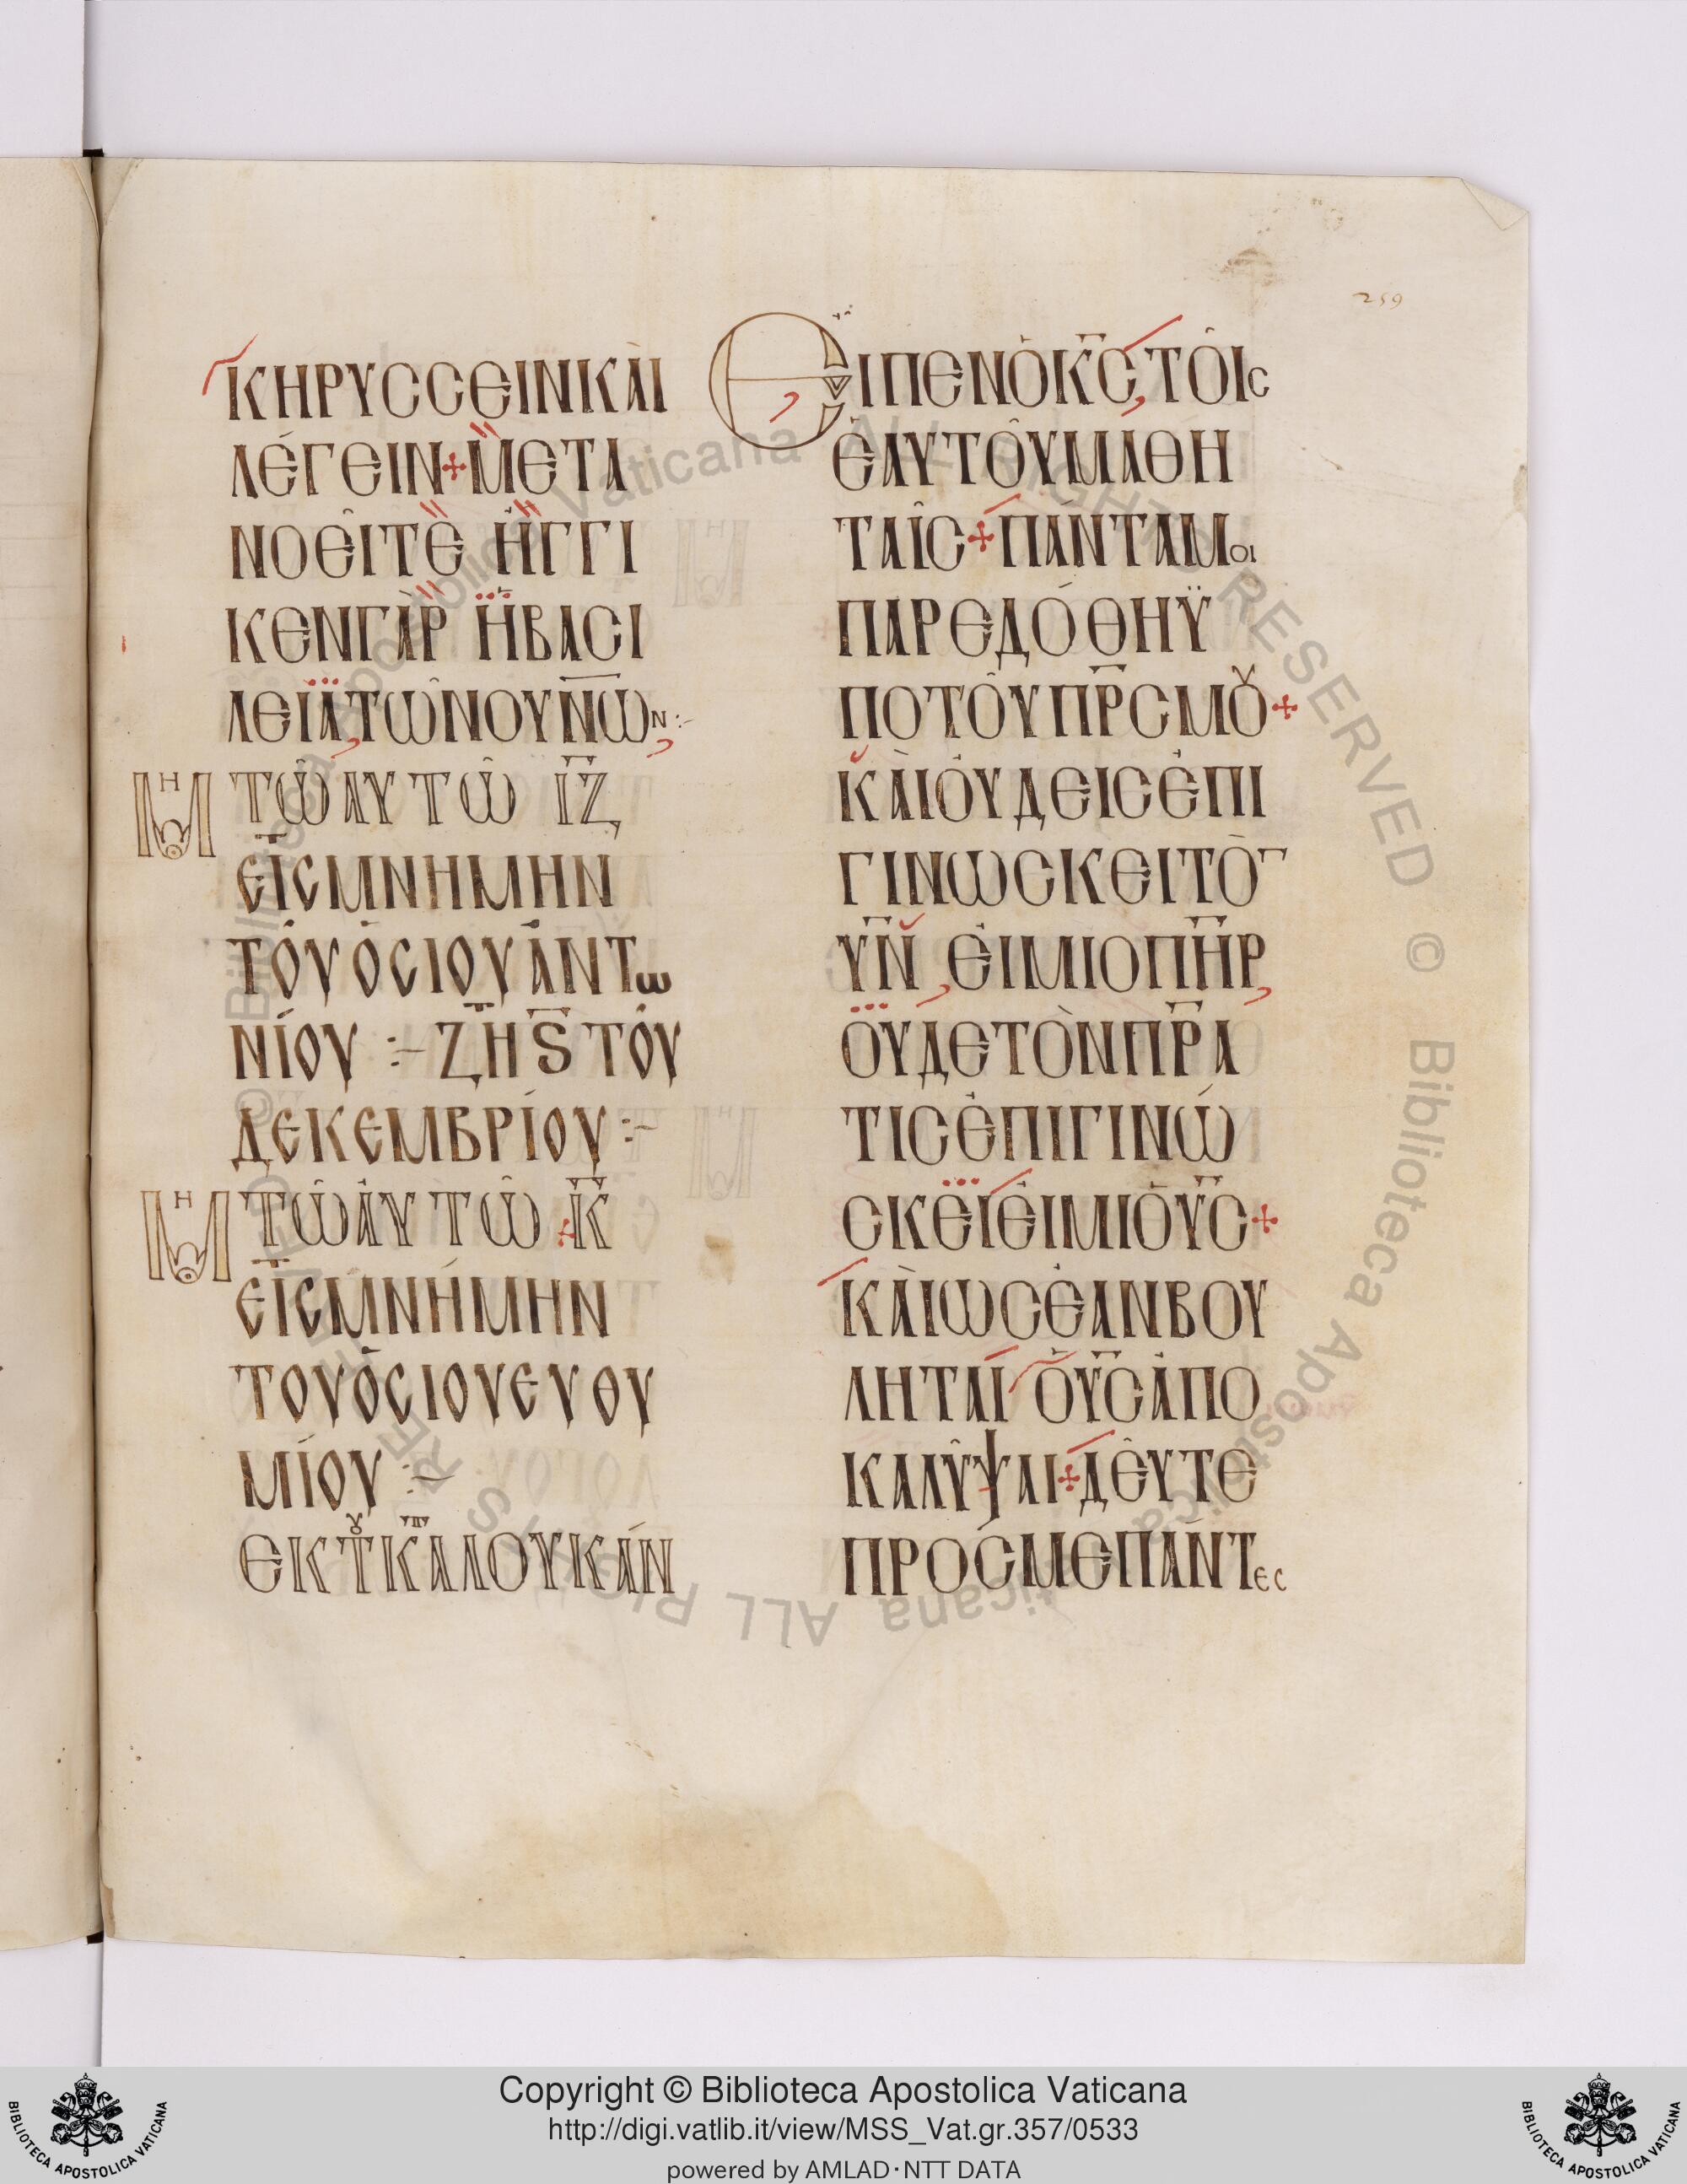 259
ΚΗΡΥϹϹΕΙΝΚΑῚ
ΛΈΓΕΙΝ+ΜΕΤΑ
ΝΟΕΙ͂ΤΕ ἨΓΓΙ
ΚΕΝΓᾺΡ ἩΒΑϹΙ
ΛΕΙΑΤΩ͂ΝΟΥΝ̅Ων:-
ΜΗ ΤΩ͂ ΑΥΤΩ͂ ΙΖ̅
ΕἸϹΜΝΗΜΗΝ
ΤΟΥ͂ὉϹΙΟΥἈΝΤω
ΝΊΟΥ :- ΖΗ ϛ̅ ΤΟΥ͂
ΔΕΚΕΜΒΡΊΟΥ :-
ΜΗ ΤΩ͂ ΑΥΤΩ͂ Κ̅
ΕἸϹΜΝΉΜΗΝ
ΤΟΥὉϹΙΟΥΕΥΘΥ
ΜΊΟΥ :-
ΕΚΤΚΑΛΟΥΚΑΝ
ΕΙΠΕΝὉΚ̅Ϲ,ΤΟΙ͂ϲ
ἙΑΥΤΟΥ͂ΜΑΘΗ
ΤΑΙ͂Ϲ+ΠΆΝΤΑΜοι
ΠΑΡΕΔΌΘΗΫ
ΠΟΤΟΥ͂ΠΡ̅ϹΜΟΥ+
ΚΑῚΟὙΔΕΙϹἘΠΙ
ΓΙΝΩϹΚΕΙΤῸ
ΥΝ̅ ,ἘΙΜΙΟΠΗ̅Ρ,
ΟΥΔΕΤῸΝΠΡ̅Α
ΤΙϹἘΠΙΓΙΝΏ
ϹΚΕΙἘΙΜΙὉΥ̅Ϲ+
ΚΑῚΩϹἘΑΝΒΟΥ
ΛΗΤΑΙ ὉΥ̅ϹἈΠΟ
ΚΑΛΥ͂ΨΑΙ+ΔΕΥ͂ΤΕ
ΠΡΌϹΜΕΠΆΝΤεϲ
Copyright © Biblioteca Apostolica Vaticana
http://digi.vatlib.it/view/MSS_Vat.gr.357/0533
powered by AMLAD·NTT DATA
BIBLIOTECA APOSTOLICA VATICANA
BIBLIOTECA APOSTOLICA VATICANA